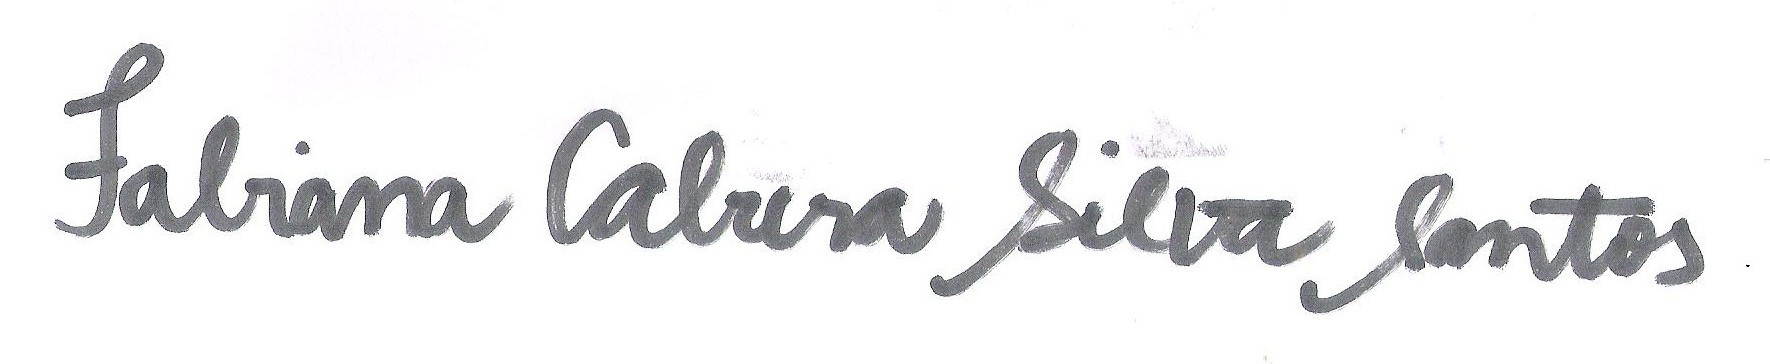 Fabiana Cabrera Silva Santos